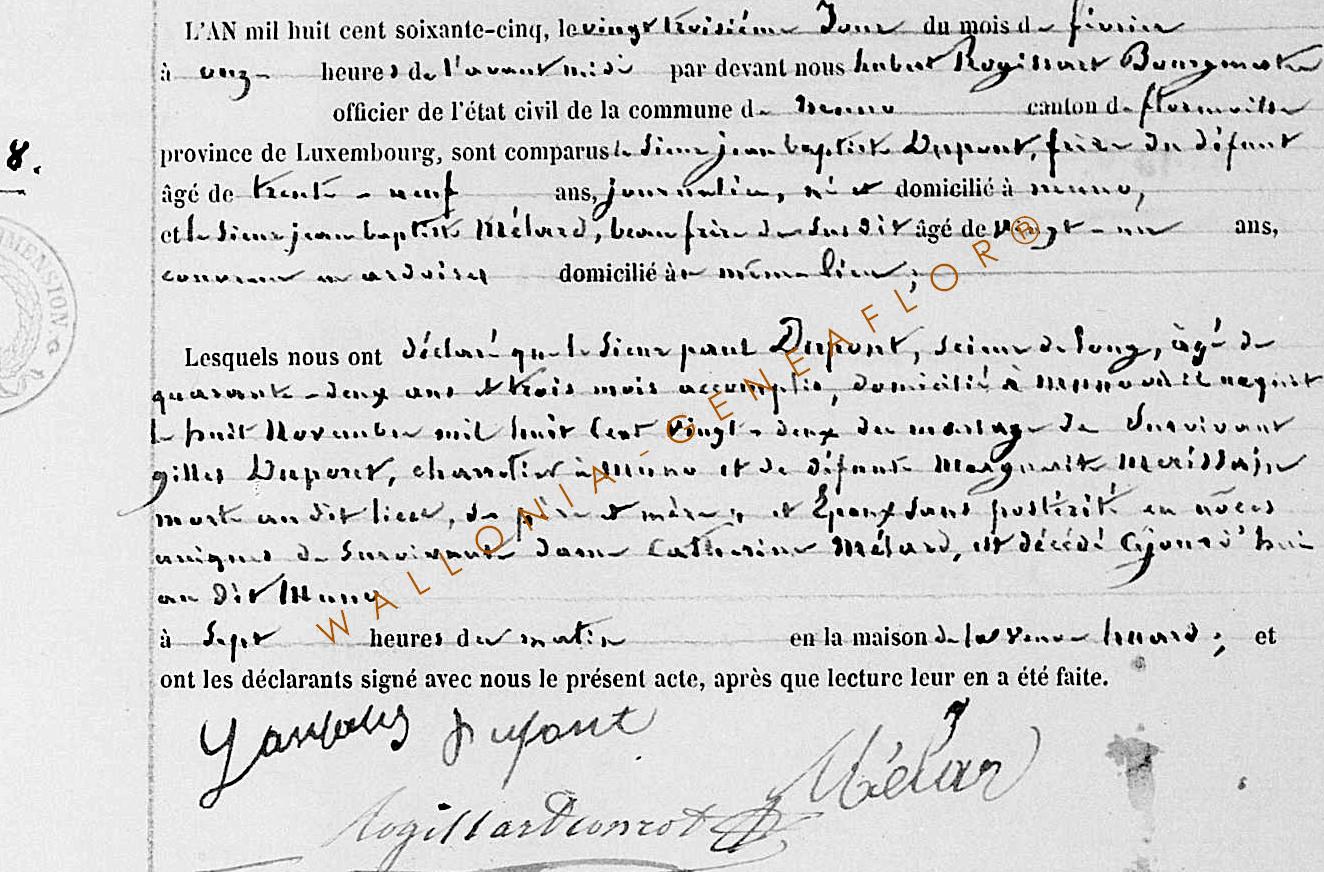 L'AN mil huit cent soixante-cinq, le vingt troisième Jour du mois de février
à onze heures de l'avant midi par devant nous hubert Rogissart Bourgmestre
officier de l'état civil de la commune de Muno canton de florenville
province de Luxembourg, sont comparus le Sieur jean baptiste Dupont, frère du défunt
8.
âgé de trente-neuf ans, journalier, né et domicilié à muno,
et le Sieur jean baptiste Mélard, beau frère du Sus dit âgé de vingt-six ans,
couvreur en ardoises domicilié à même lieu;
Lesquels nous ont déclaré que le Sieur paul Dupont, scieur de long, âgé de
quarante-deux ans et trois mois accomplis, domicilié à Muno où il naquit
le huit Novembre mil huit Cent vingt-deux du mariage de Survivant
gilles Dupont, charretier à Muno et de défunte Marguerite
morte au dit lieu, ses père et mère; et Epoux sans postérité en nôces
uniques de Survivante dame Catherine Mélard, est décédé Cejourd'hui
au dit Muno
à Sept heures du matin en la maison de la veuve huard; et
ont les déclarants signé avec nous le présent acte, après que lecture leur en a été faite.
Dupont
Mélar
Rogissart
WALLONIA-GENEAFLOR®
MMENSION G